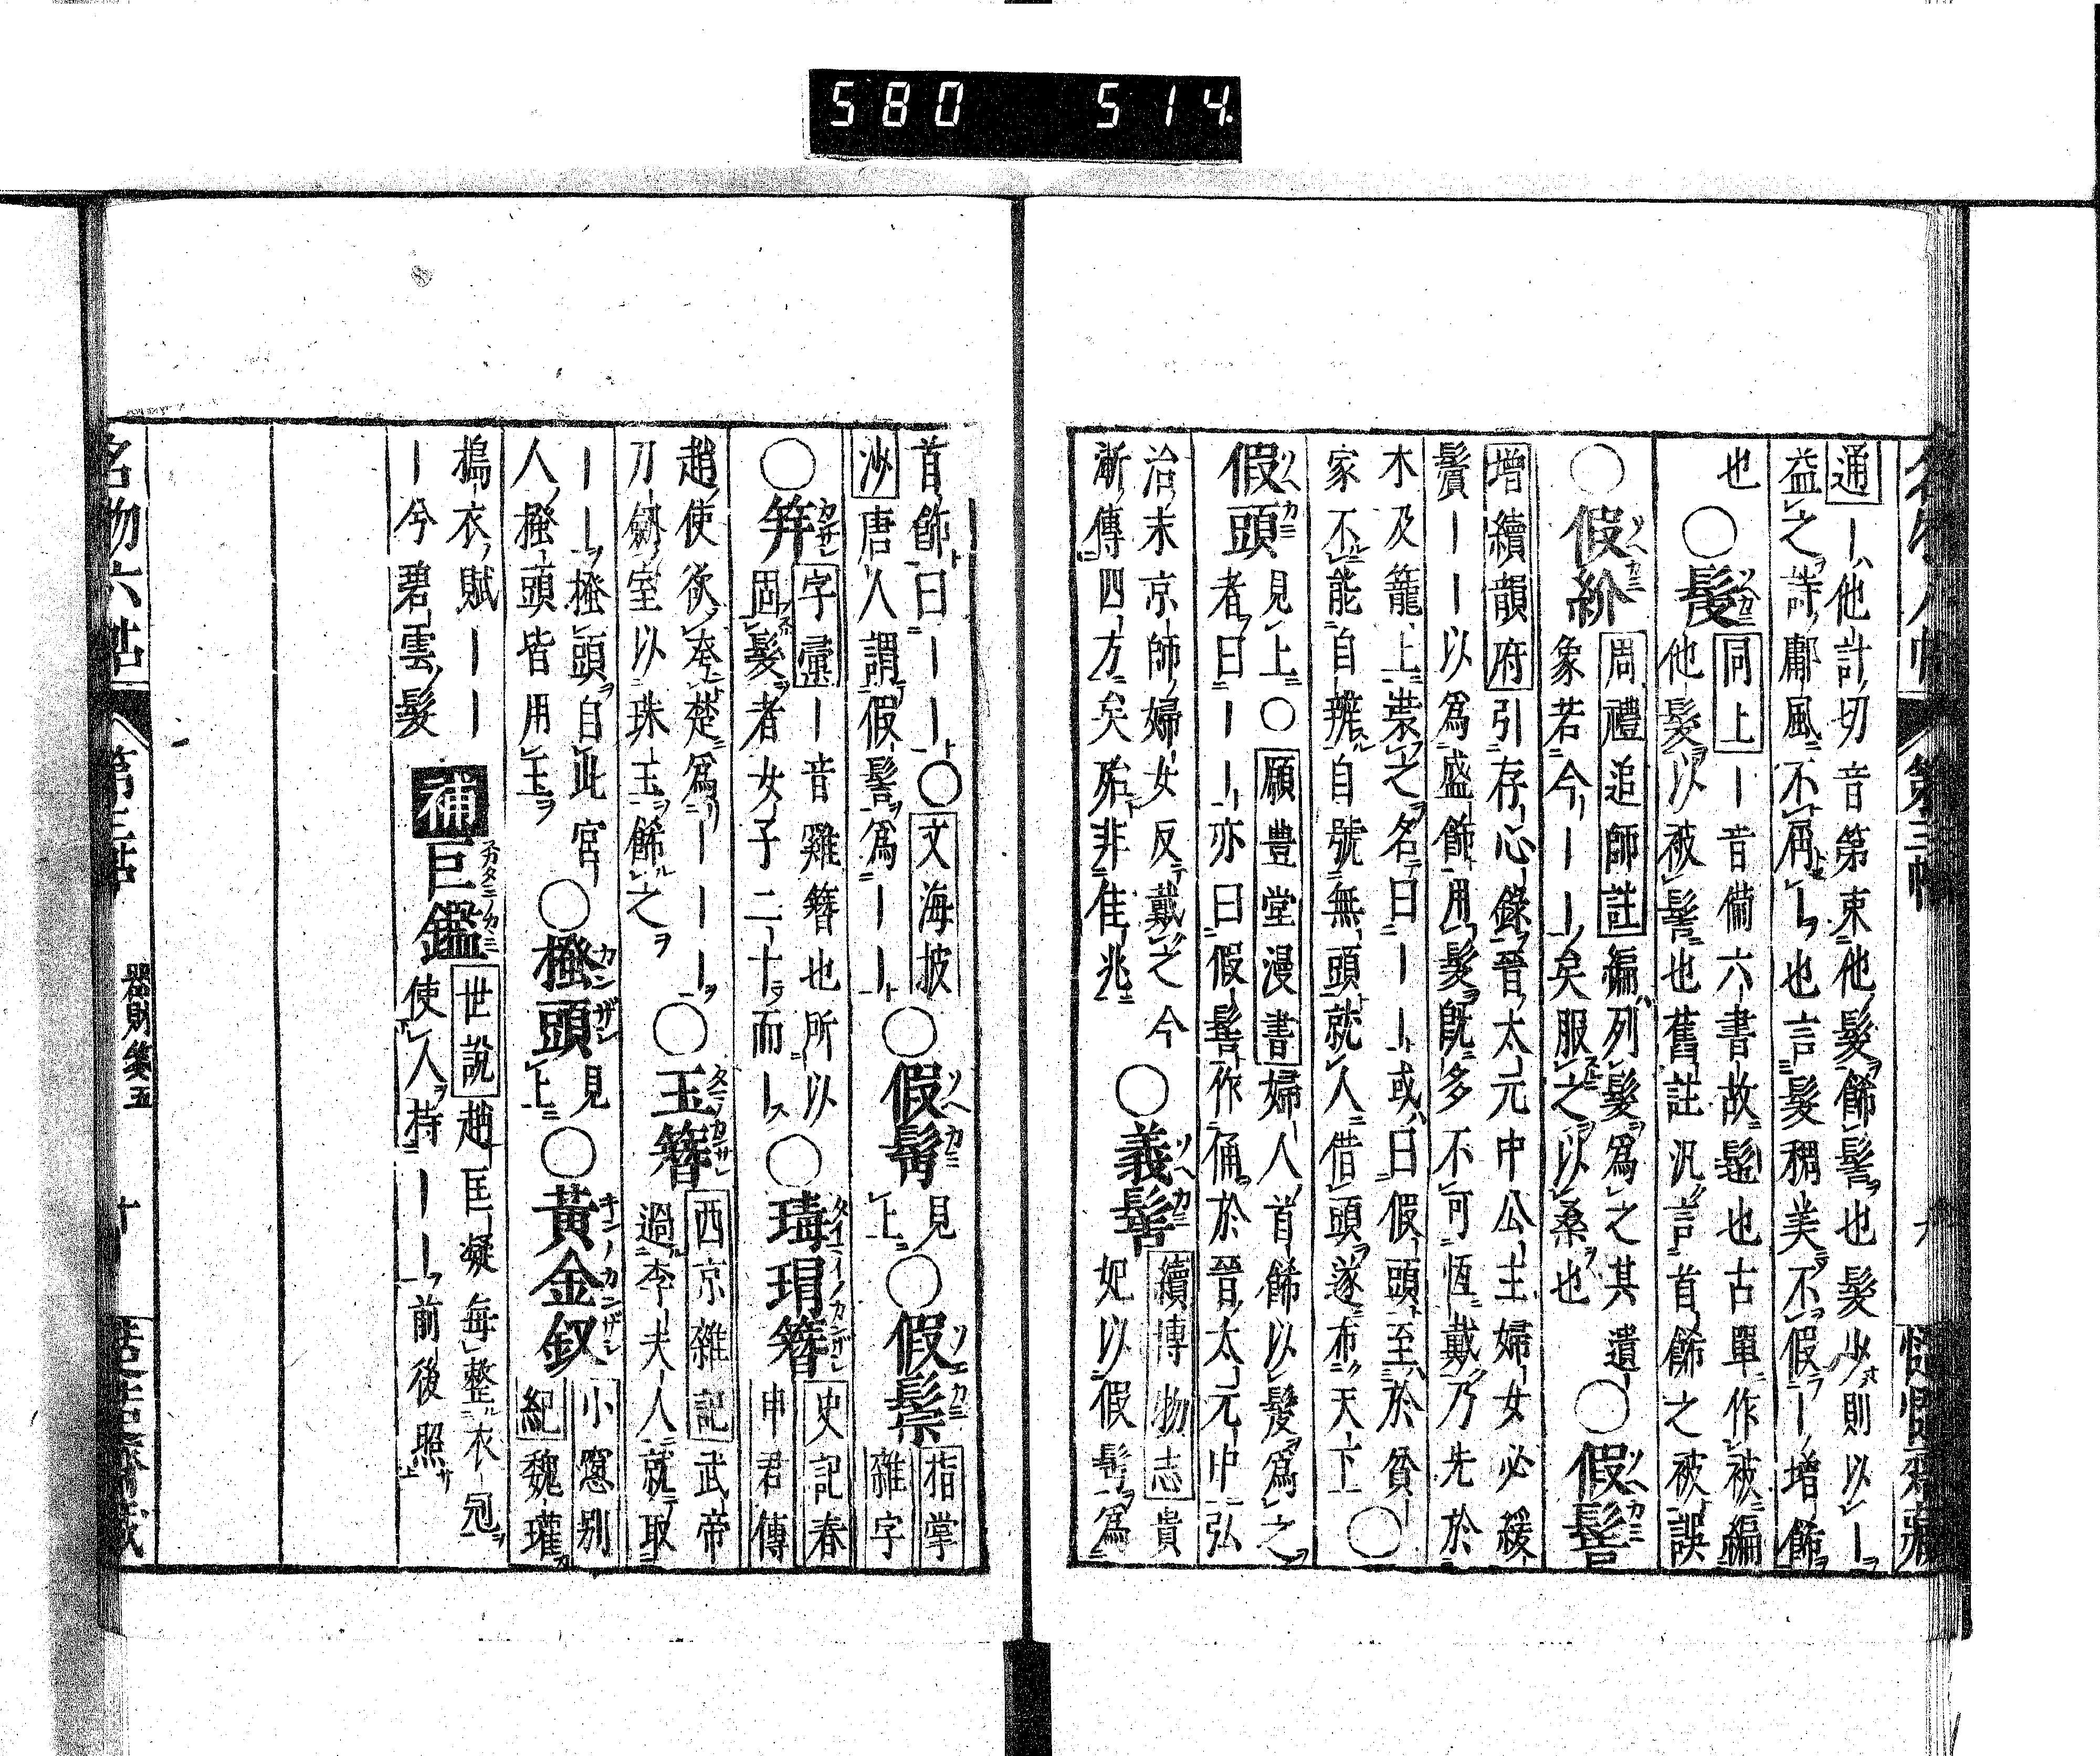 580 514.
通｜他計切音第束他髮餙髻也髮少則以｜
益之詩鄘風不屑｜也言髮稠美不假｜增餙
也
○髲 同上｜音備六書故髢也古單作被編
他髮以被髻也舊註汎言首餙之被誤
○假紒 周禮追師註編列髮為之其遺
象若今｜｜矣服之以桑也
○假髻
增續韻府引存心錄晉太元中公主婦女必緩
鬢｜｜以為盛餙用髮既多不可恆戴乃先於
木及籠上裝之名曰｜｜或曰假頭至於貧
家不能自辦自號無頭就人借頭遂布天下
○假頭 見上○願豊堂漫書婦人首餙以髮為之
者曰｜｜亦曰假髻作俑於晉太元中弘
治末京師婦女反戴之今
漸傳四方矣殆非佳兆
○義髻 續博物志貴
妃以假髻為
首餙曰｜｜○文海披
沙唐人謂假髻為｜｜
○假髾 見上
○假鬃 指掌
雜字
○笄 字彙｜音雞簪也所以
固髮者女子二十而｜
○瑇瑁簪 史記春
申君傳
趙使欲夸楚為｜｜｜
刀劔室以珠玉餙之
○玉簪 西京雜記武帝
過李夫人就取
｜｜搔頭自此宮
人搔頭皆用玉
○搔頭 見上
○黃金釵 小窓别
紀魏瓘
搗衣賦｜｜
｜兮碧雲髮
補巨鑑 世說趙匡凝每整衣冠
使人持｜｜前後照
名物六帖 第三帖 器財箋五 十